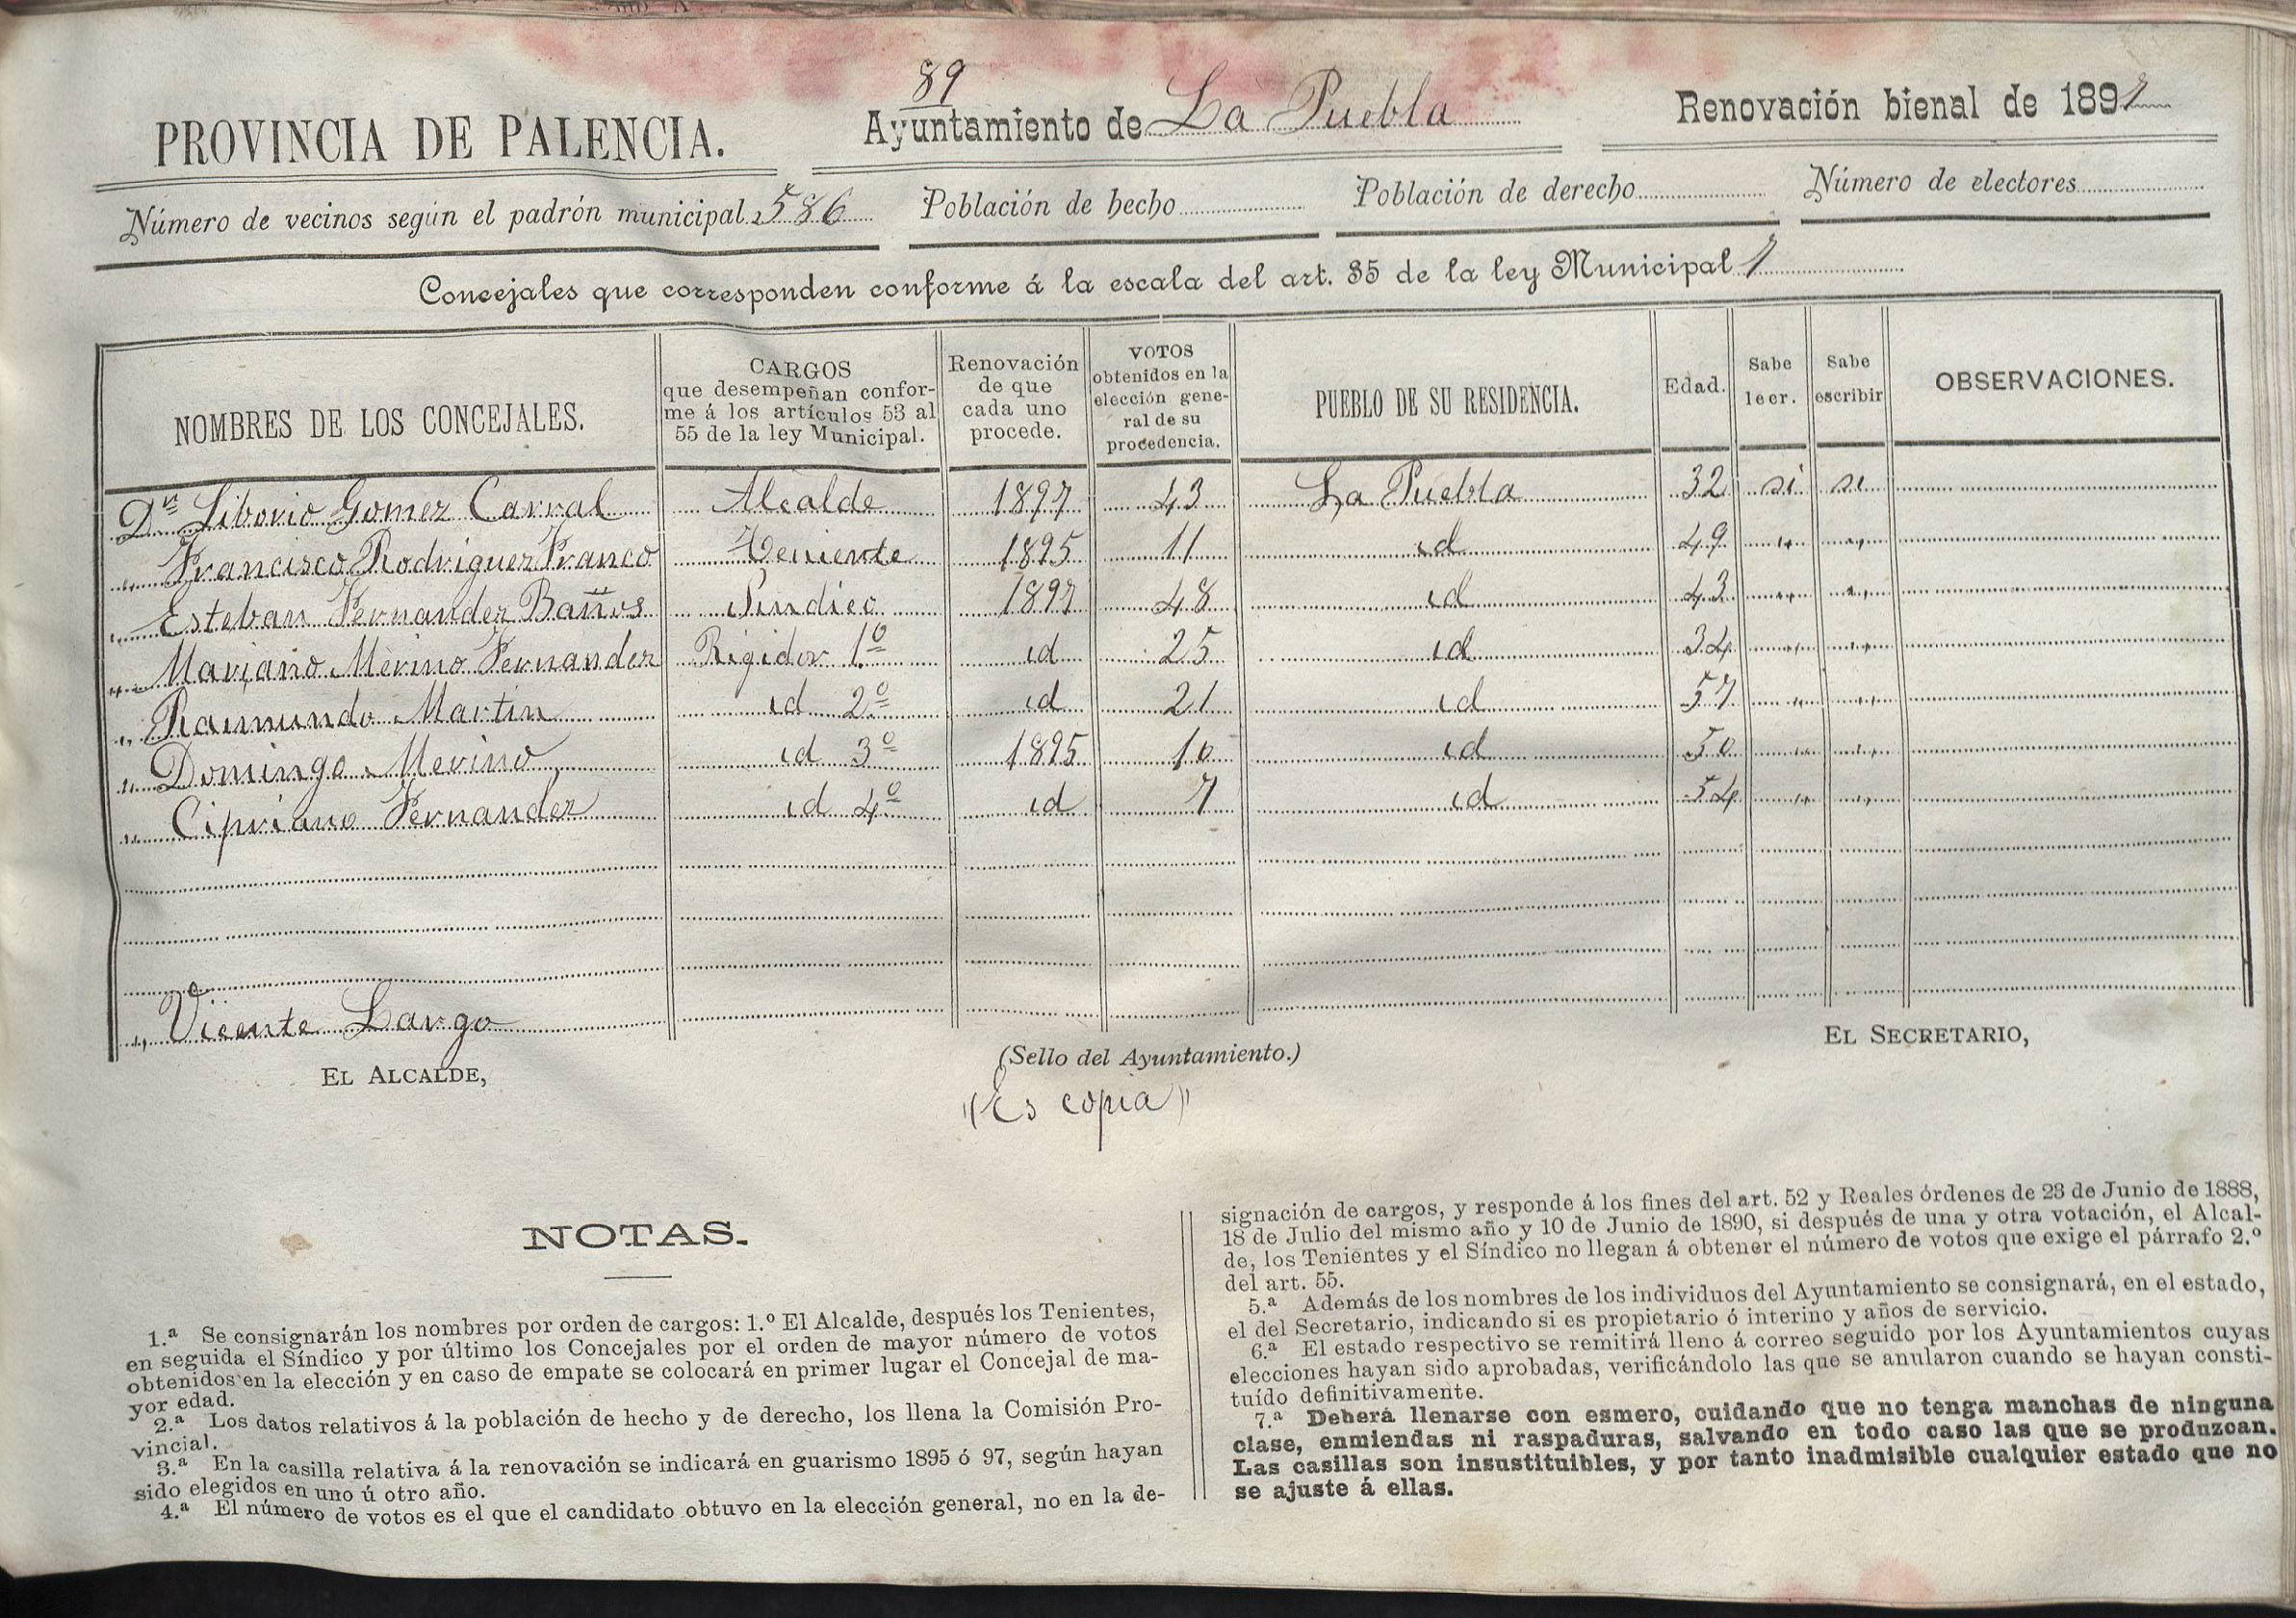 89
PROVINCIA DE PALENCIA. Ayuntamiento de La Puebla Renovación bienal de 1897
Número de vecinos según el padrón municipal 586 Población de hecho Población de derecho Número de electores
Concejales que corresponden conforme á la escala del art. 35 de la ley Municipal 7
NOMBRES DE LOS CONCEJALES. CARGOS que desempeñan confor- Renovación VOTOS PUEBLO DE SU RESIDENCIA. Edad. Sabe Sabe OBSERVACIONES.
me á los artículos 53 al de que obtenidos en la leer. escribir
55 de la ley Municipal. cada uno elección gene-
procede. ral de su
procedencia.
Dn Liborio Gomez Carral Alcalde 1897 43 La Puebla 32 si si
" Francisco Rodriguez Franco Teniente 1895 11 id 49 " "
" Esteban Fernandez Baños Sindico 1897 48 id 43 " "
" Mariano Merino Fernandez Rigidor 1º id 25 id 34 " "
" Raimundo Martin id 2º id 21 id 57 " "
" Domingo Merino id 3º 1895 10 id 50 " "
" Cipriano Fernandez id 4º id 7 id 54 " "
" Vicente Largo
EL ALCALDE, (Sello del Ayuntamiento.) EL SECRETARIO,
"(Es copia)"
NOTAS.
1.ª Se consignarán los nombres por orden de cargos: 1.º El Alcalde, después los Tenientes,
en seguida el Síndico y por último los Concejales por el orden de mayor número de votos
obtenidos en la elección y en caso de empate se colocará en primer lugar el Concejal de ma-
yor edad.
2.ª Los datos relativos á la población de hecho y de derecho, los llena la Comisión Pro-
vincial.
3.ª En la casilla relativa á la renovación se indicará en guarismo 1895 ó 97, según hayan
sido elegidos en uno ú otro año.
4.ª El número de votos es el que el candidato obtuvo en la elección general, no en la de-
signación de cargos, y responde á los fines del art. 52 y Reales órdenes de 23 de Junio de 1888,
18 de Julio del mismo año y 10 de Junio de 1890, si después de una y otra votación, el Alcal-
de, los Tenientes y el Síndico no llegan á obtener el número de votos que exige el párrafo 2.º
del art. 55.
5.ª Además de los nombres de los individuos del Ayuntamiento se consignará, en el estado,
el del Secretario, indicando si es propietario ó interino y años de servicio.
6.ª El estado respectivo se remitirá lleno á correo seguido por los Ayuntamientos cuyas
elecciones hayan sido aprobadas, verificándolo las que se anularon cuando se hayan consti-
tuído definitivamente.
7.ª Deberá llenarse con esmero, cuidando que no tenga manchas de ninguna
clase, enmiendas ni raspaduras, salvando en todo caso las que se produzcan.
Las casillas son insustituibles, y por tanto inadmisible cualquier estado que no
se ajuste á ellas.